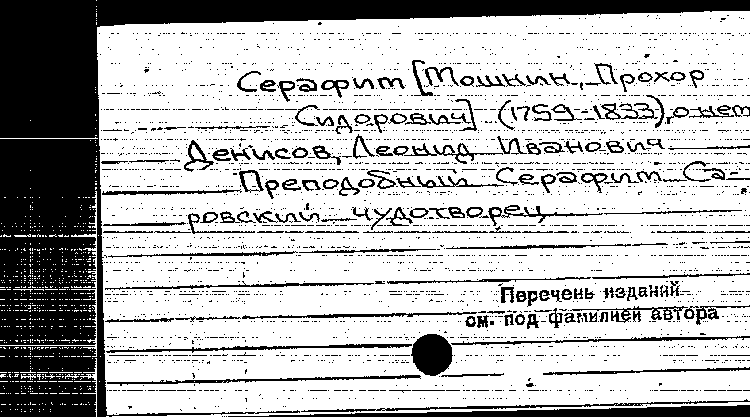 Серафим [Мошнин, Прохор
Сидорович] (1759-1833), о нем
Денисов, Леонид Иванович
Преподобный Серафим Са-
ровский чудотворец
Перечень изданий
см. под фамилией автора